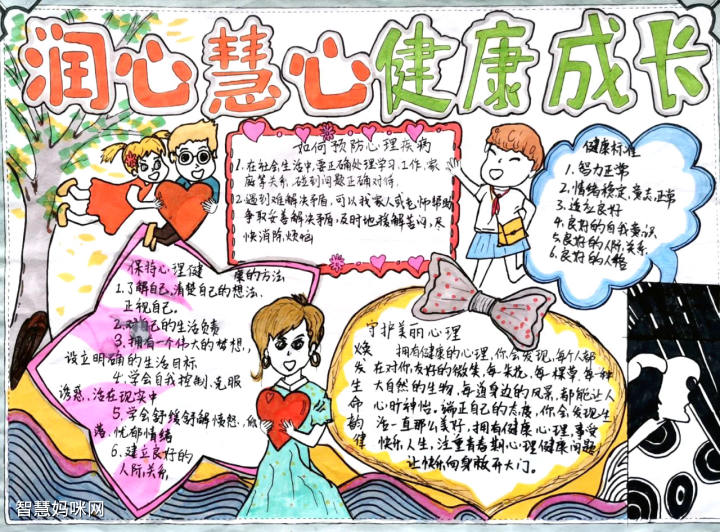 润心慧心健康成长
如何预防心理疾病
1.在社会生活中,要正确处理学习,工作,家
庭等关系,碰到问题正确对待.
2.遇到难解决矛盾,可以找家人或老师帮助
争取妥善解决矛盾,及时地缓解苦闷,尽
快消除烦恼
健康标准
1.智力正常
2.情绪稳定,意志正常
3.适应良好
4.良好的自我意识
5.良好的人际关系
6.良好的人格
保持心理健康的方法
1.了解自己,清楚自己的想法,
正视自己.
2.对自己的生活负责
3.拥有一个伟大的梦想,
设立明确的生活目标
4.学会自我控制,克服
诱惑,活在现实中
5.学会舒缓舒解愤怒,低
落,忧郁情绪
6.建立良好的
人际关系
守护美丽心理
焕发生命韵律
拥有健康的心理,你会发现,每个人都
在对你友好的微笑,每朵花,每棵草,每种
大自然的生物,每道身边的风景,都能让人
心旷神怡,端正自己的态度,你会发现生
活一直那么美好,拥有健康心理,享受
快乐人生,注重青春期心理健康问题
让快乐向身敞开大门。
智慧妈咪网